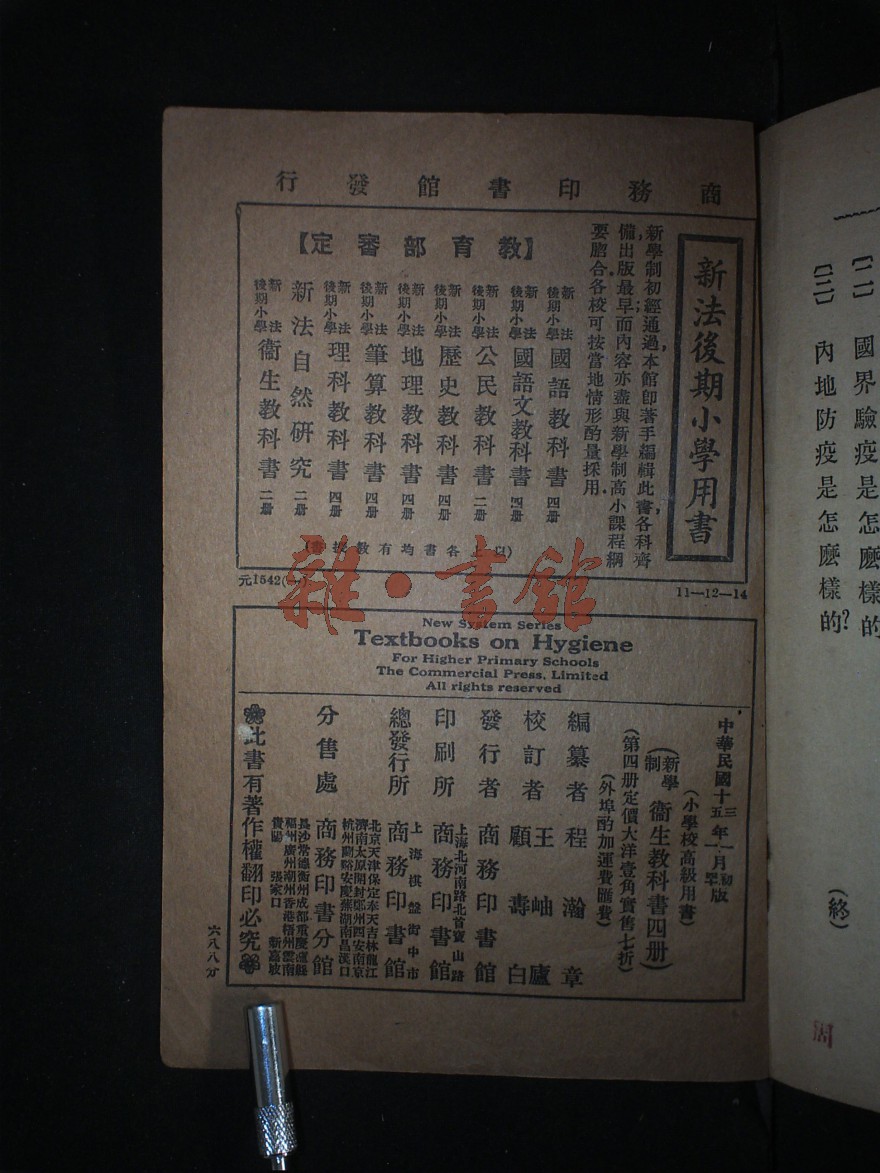 〔二〕 國界驗疫是怎麽樣的
〔三〕 內地防疫是怎麽樣的?
(終)
商務印書館發行
新法後期小學用書
新學制初經通過,本館卽著手編輯此書,各科齊
備,出版最早;而內容亦盡與新學制高小課程綱
要脗合.各校可按當地情形酌量採用.
【教育部審定】
新法後期小學 國語教科書 四册
新法後期小學 國語文教科書 四册
新法後期小學 公民教科書 二册
新法後期小學 歷史教科書 四册
新法後期小學 地理教科書 四册
新法後期小學 筆算教科書 四册
新法後期小學 理科教科書 四册
新法自然研究 二册
新法後期小學 衞生教科書 二册
(以上各書均有教授書)
元1542(一)
11—12—14
雜·書館
New System Series
Textbooks on Hygiene
For Higher Primary Schools
The Commercial Press, Limited
All rights reserved
(小學校高級用書)
(新學制)衞生教科書四册)
(第四册定價大洋壹角實售七折)
(外埠酌加運費匯費)
編纂者 程瀚章
校訂者 王岫廬 顧壽白
發行者 商務印書館
印刷所 上海北河南路北首寶山路 商務印書館
總發行所 上海棋盤街中市 商務印書館
分售處 商務印書分館
北京天津保定奉天吉林龍江
濟南太原開封鄭州西安南京
杭州蘭谿安慶蕪湖南昌漢口
長沙常德衡州成都重慶瀘縣
福州廣州潮州香港梧州雲南
貴陽 張家口 新嘉坡
此書有著作權翻印必究
六八八分